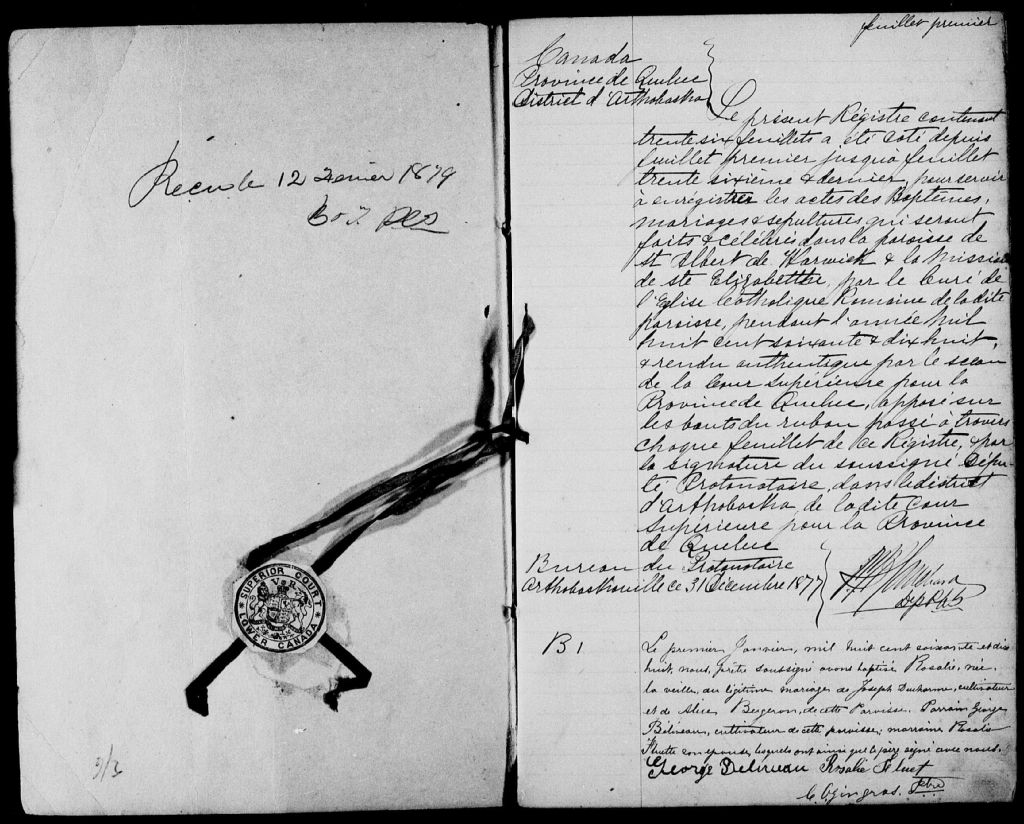 Recu le 12 Janvier 1879
SUPERIOR COURT
V R
LOWER CANADA
3/3
feuillet premier
Canada
Province de Quebec
District d'Arthabaska
Le présent Régistre contenant
trente six feuillets a été coté depuis
feuillet premier jusqu'a feuillet
trente sixième & dernier, pour servir
a enrégistrer les actes des Baptêmes,
mariages & sépultures qui seront
faits & célébrés dans la paroisse de
St Albert de Warwick & la mission
de Ste Elizabeth, par le Curé de
l'Eglise Catholique Romaine de la dite
paroisse, pendant l'année mil
huit cent soixante & dix huit,
& rendu authentique par le sceau
de la Cour Supérieure pour la
Province de Quebec, apposé sur
les bouts du ruban passé à travers
chaque feuillet de ce Régistre, & par
la signature du soussigné Dépu-
té Protonotaire, dans le district
d'Arthabaska, de la dite Cour
Supérieure pour la Province
de Quebec
Bureau du Protonotaire
Arthabaskaville ce 31 Décembre 1877
B 1
Le premier Janvier, mil huit cent soixante et dix
huit, nous, prêtre soussigné avons baptisé Rosalie, née
la veille, du légitime mariage de Joseph Ducharme, cultivateur
et de Alice Bergeron, de cette Paroisse. Parrain George
Bélineau, cultivateur de cette paroisse; marraine Rosalie
son épouse, lesquels ont ainsi que le père signé avec nous.
George Belineau Rosalie
Gingras. Ptre